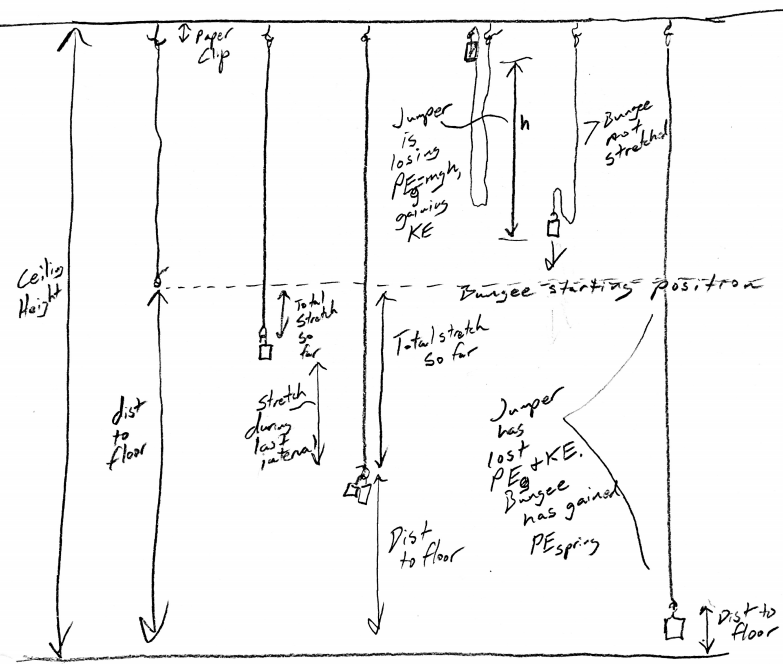 Paper
Clip
Ceiling
Height
dist
to
floor
Total
stretch
so
far
stretch
during
last
interval
Total stretch
so far
Dist
to floor
Jumper
is
losing
PEg=mgh,
gaining
KE
h
Bungee
not
stretched
Bungee starting position
Jumper
has
lost
PEg + KE.
Bungee
has gained
PEspring
Dist to
floor